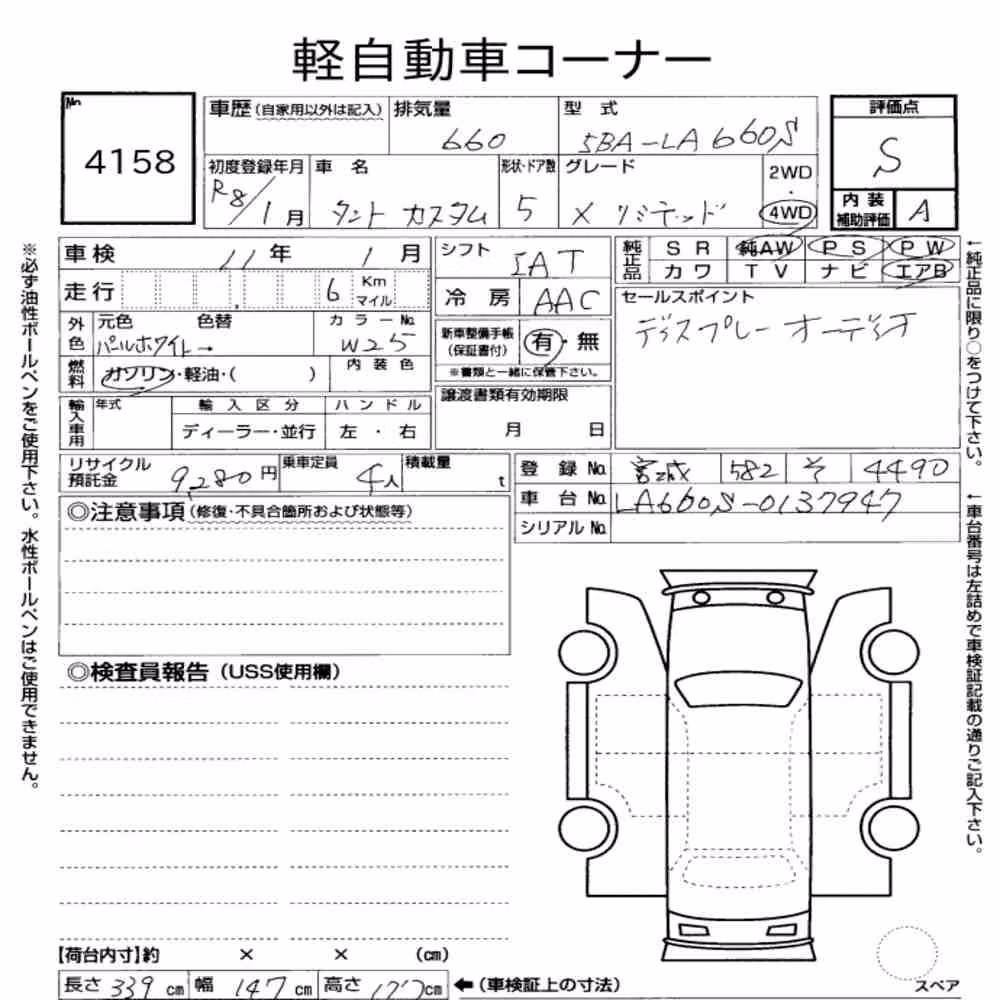 軽自動車コーナー
No. 4158
車歴(自家用以外は記入) 排気量 660 型式 5BA-LA660S
評価点 S
初度登録年月 R8/1月 車名 タント カスタム 形状・ドア数 5 グレード X リミテッド 2WD・4WD
内装補助評価 A
車検 11年 1月 シフト IAT 純正品 SR 純AW PS PW
カワ TV ナビ エアB
走行 6 Km マイル 冷房 AAC セールスポイント
ディスプレーオーディオ
外色 元色 パールホワイト→ 色替 カラーNo. W25 新車整備手帳(保証書付) 有・無
※書類と一緒に保管下さい。
燃料 ガソリン・軽油・( ) 内装色
譲渡書類有効期限 月 日
輸入車用 年式 輸入区分 ハンドル
ディーラー・並行 左・右
リサイクル預託金 9,280円 乗車定員 4人 積載量 t 登録No. 宮城 582 そ 4490
車台No. LA660S-0137947
シリアルNo.
◎注意事項(修復・不具合箇所および状態等)
◎検査員報告(USS使用欄)
【荷台内寸】約 × × (cm)
長さ 339cm 幅 147cm 高さ 177cm ←(車検証上の寸法)
スペア
※必ず油性ボールペンをご使用下さい。水性ボールペンはご使用できません。
←純正品に限り○をつけて下さい。
←車台番号は左詰めで車検証記載の通りご記入下さい。